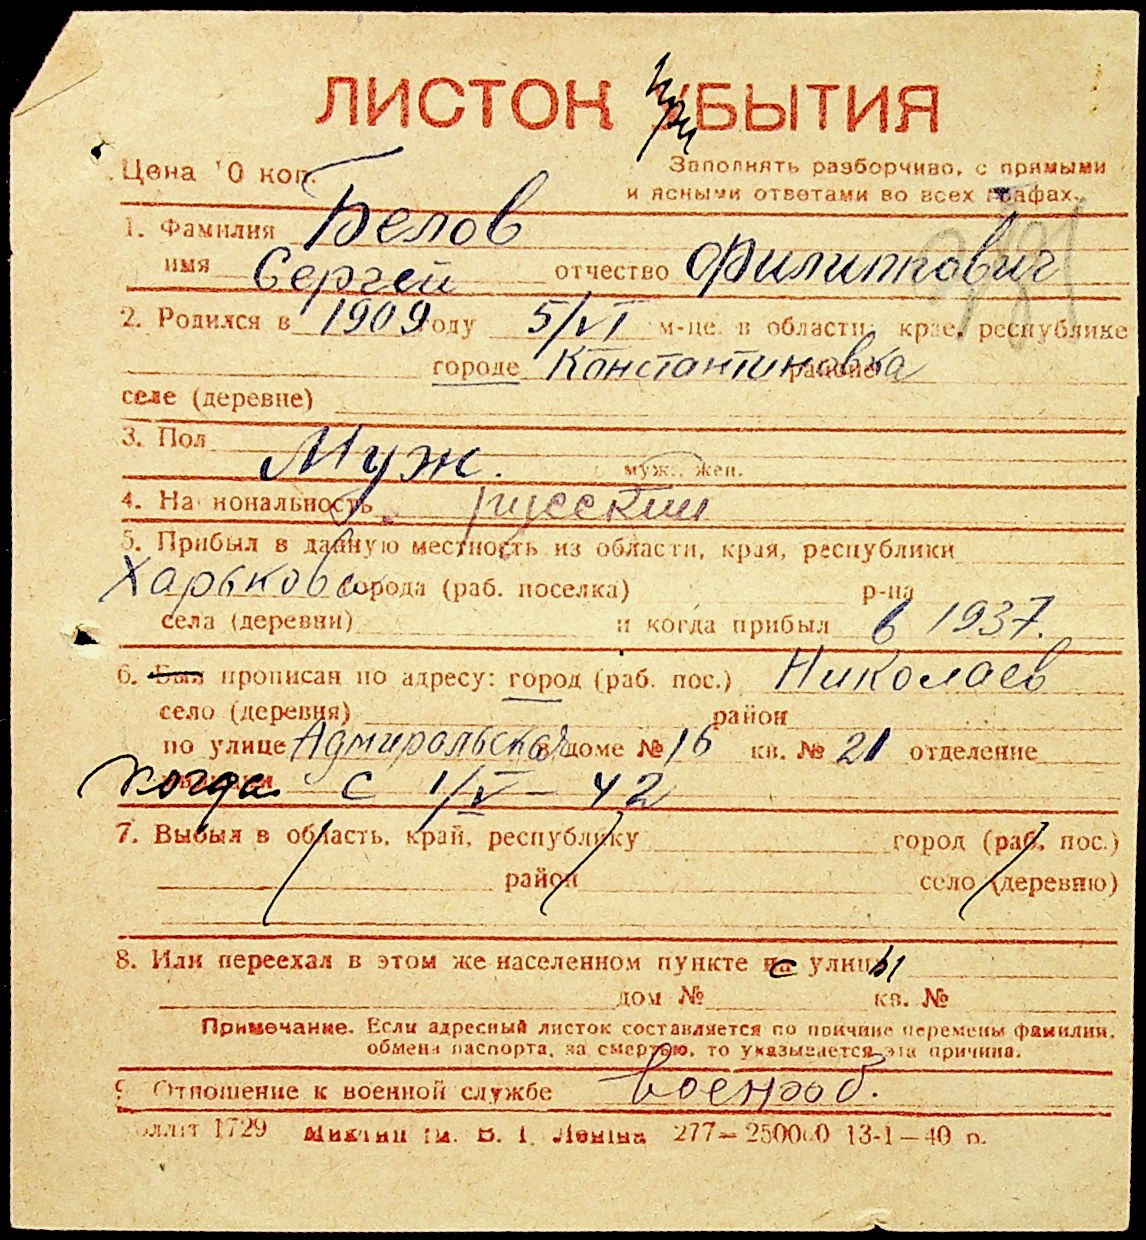 ЛИСТОК при БЫТИЯ
Цена 10 коп.
Заполнять разборчиво, с прямыми
и ясными ответами во всех графах.
1. Фамилия Белов
имя Сергей отчество Филиппович
2. Родился в 1909 году 5/VI м-це в области, крае, республике
городе Константиновка районе
селе (деревне)
3. Пол Муж. муж., жен.
4. Национальность русский
5. Прибыл в данную местность из области, края, республики
Харьков города (раб. поселка) р-на
села (деревни) и когда прибыл в 1937.
6. Был прописан по адресу: город (раб. пос.) Николаев
село (деревня) район
по улице Адмиральская в доме № 16 кв. № 21 отделение
когда с 1/V – 42
7. Выбыл в область, край, республику город (раб. пос.)
район село (деревню)
8. Или переехал в этом же населенном пункте с улицы
дом № кв. №
Примечание. Если адресный листок составляется по причине перемены фамилии,
обмена паспорта, за смертью, то указывается эта причина.
9. Отношение к военной службе военнооб.
1729 Леніна 277—250000 13-1—40 р.